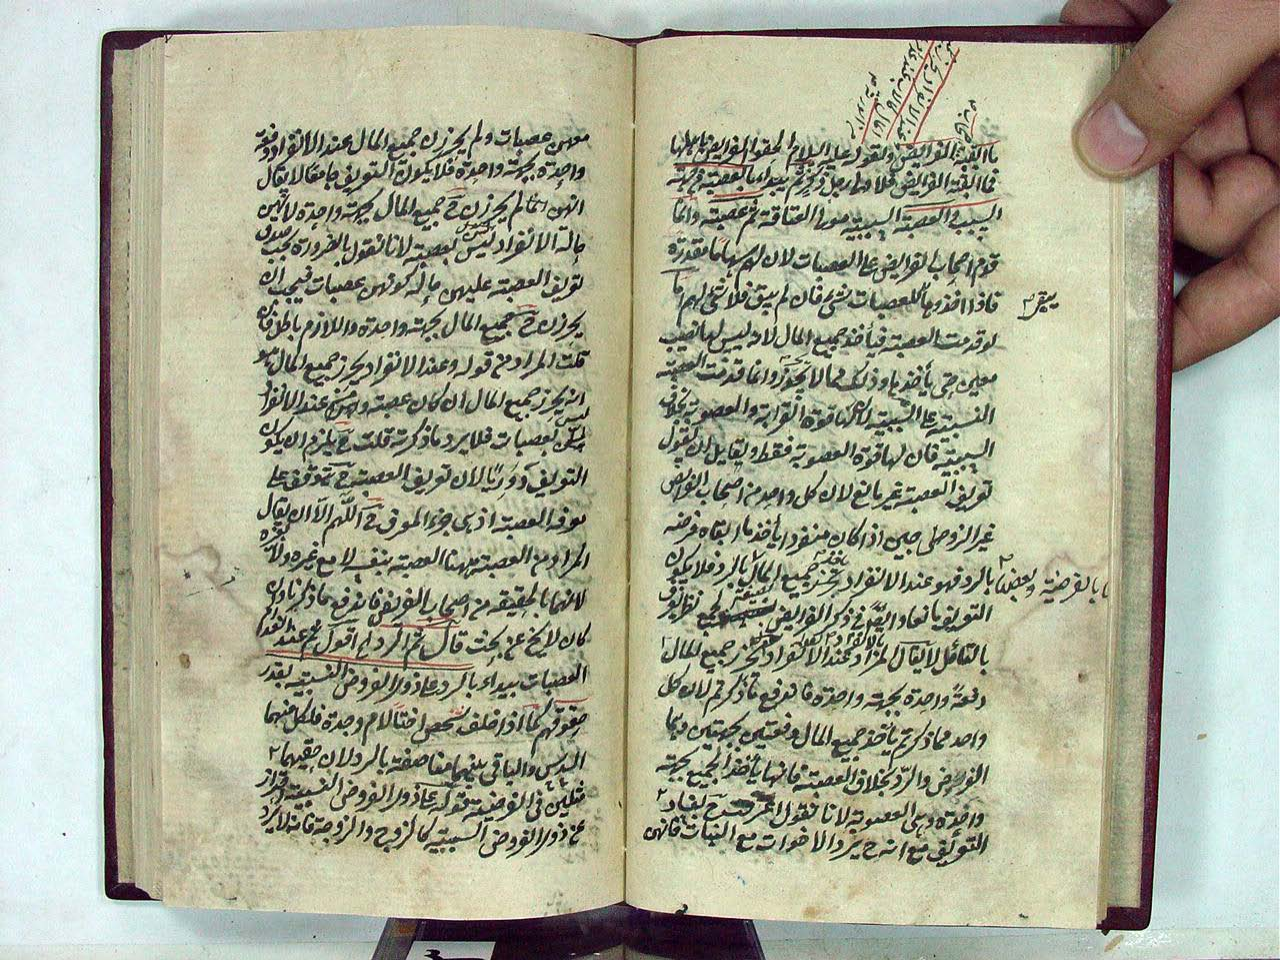 ما ابقته الفرائض ولقوله عليه السلام الحقوا الفرايض باهلها
فما ابقته الفرايض فلاولى رجل ذكر ثم يبدا بالعصبة من جهة
السبب والعصبة السببية مولى العتاقة ثم عصبته وانما
قدم اصحاب الفرايض على العصبات لان لهم سهاما مقدرة
فاذا اخذوها للعصبات شئ فان لم يبق فلا شئ لهم اما
يبقى
لو قدمت العصبة فيأخذ جميع المال لانه ليس لها نصيب
معين حتى يأخذها وذلك مما لا يجوز وانما قدمت العصبة
النسبية على السببية لان لها قوة القرابة والعصوبة بخلاف
السببية فان لها قوة العصوبة فقط ولقايل ان يقول
تعريف العصبة غير مانع لان كل واحد من اصحاب الفرايض
غير الزوجين اذا كان منفردا يأخذ ما ابقاه فرضه
بالرد فهو عند الانفراد جميع المال بالرد فلا يكون
بالفرضية وبعضها
التعريف مانعا
بالتأمل لا يقال المراد عند الانفراد يحرز جميع المال
دفعة واحدة بجهة واحدة فاندفع ما ذكرتم لان كل
واحد مما ذكرتم يأخذ جميع المال دفعتين بجهتين وهما
الفرض والرد بخلاف العصبة فانها يأخذ الجميع بجهة
واحدة وهي العصوبة لانا نقول
التعريف مع انه ح يرد الاخوات مع البنات فانهن
معهن عصبات ولم يحرزن جميع المال عند الانفراد دفعة
واحدة بجهة واحدة فلا يكون التعريف جامعا لا يقال
انهن انما لم يحرزن جميع المال بجهة واحدة لانهن
حالة الانفراد ليس بعصبة لانا نقول بالضرورة يجب صدق
تعريف العصبة عليهن حالة كونهن عصبات فيجب ان
يحرزن ح جميع المال بجهة واحدة واللازم باطل فان
قلت المراد من قوله وعند الانفراد يحرز جميع المال هو
انه يحرز جميع المال ان كان عصبة عند الانفراد
ليس
بعصبات فلا يرد ما ذكرته قلت ح يلزم ان يكون
التعريف دوريا لان تعريف العصبة ح يتوقف على
معرفة العصبة اذ هي جزء المعرف ح اللهم الا ان يقال
المراد من العصبة ههنا العصبة بنفسه لا مع غيره ولا بغيره
لانهما بالحقيقة من اصحاب الفرايض فاندفع ما ذكرنا وان
كان لا يخ عن بحث قال ثم الرد الخ اقول ثم عند
العصبات يبداء بالرد على ذوى الفروض النسبية بقدر
حقوقهم كما اذا خلف شخص اختا لام وجدة فلكل منهما
السدس والباقى بينهما مناصفة بالرد لان حقيهما
مثلين فى الفرضية قوله على ذوى الفروض النسبية احتراز
عن ذوى الفروض السببية كالزوج والزوجة فانه لا يرد